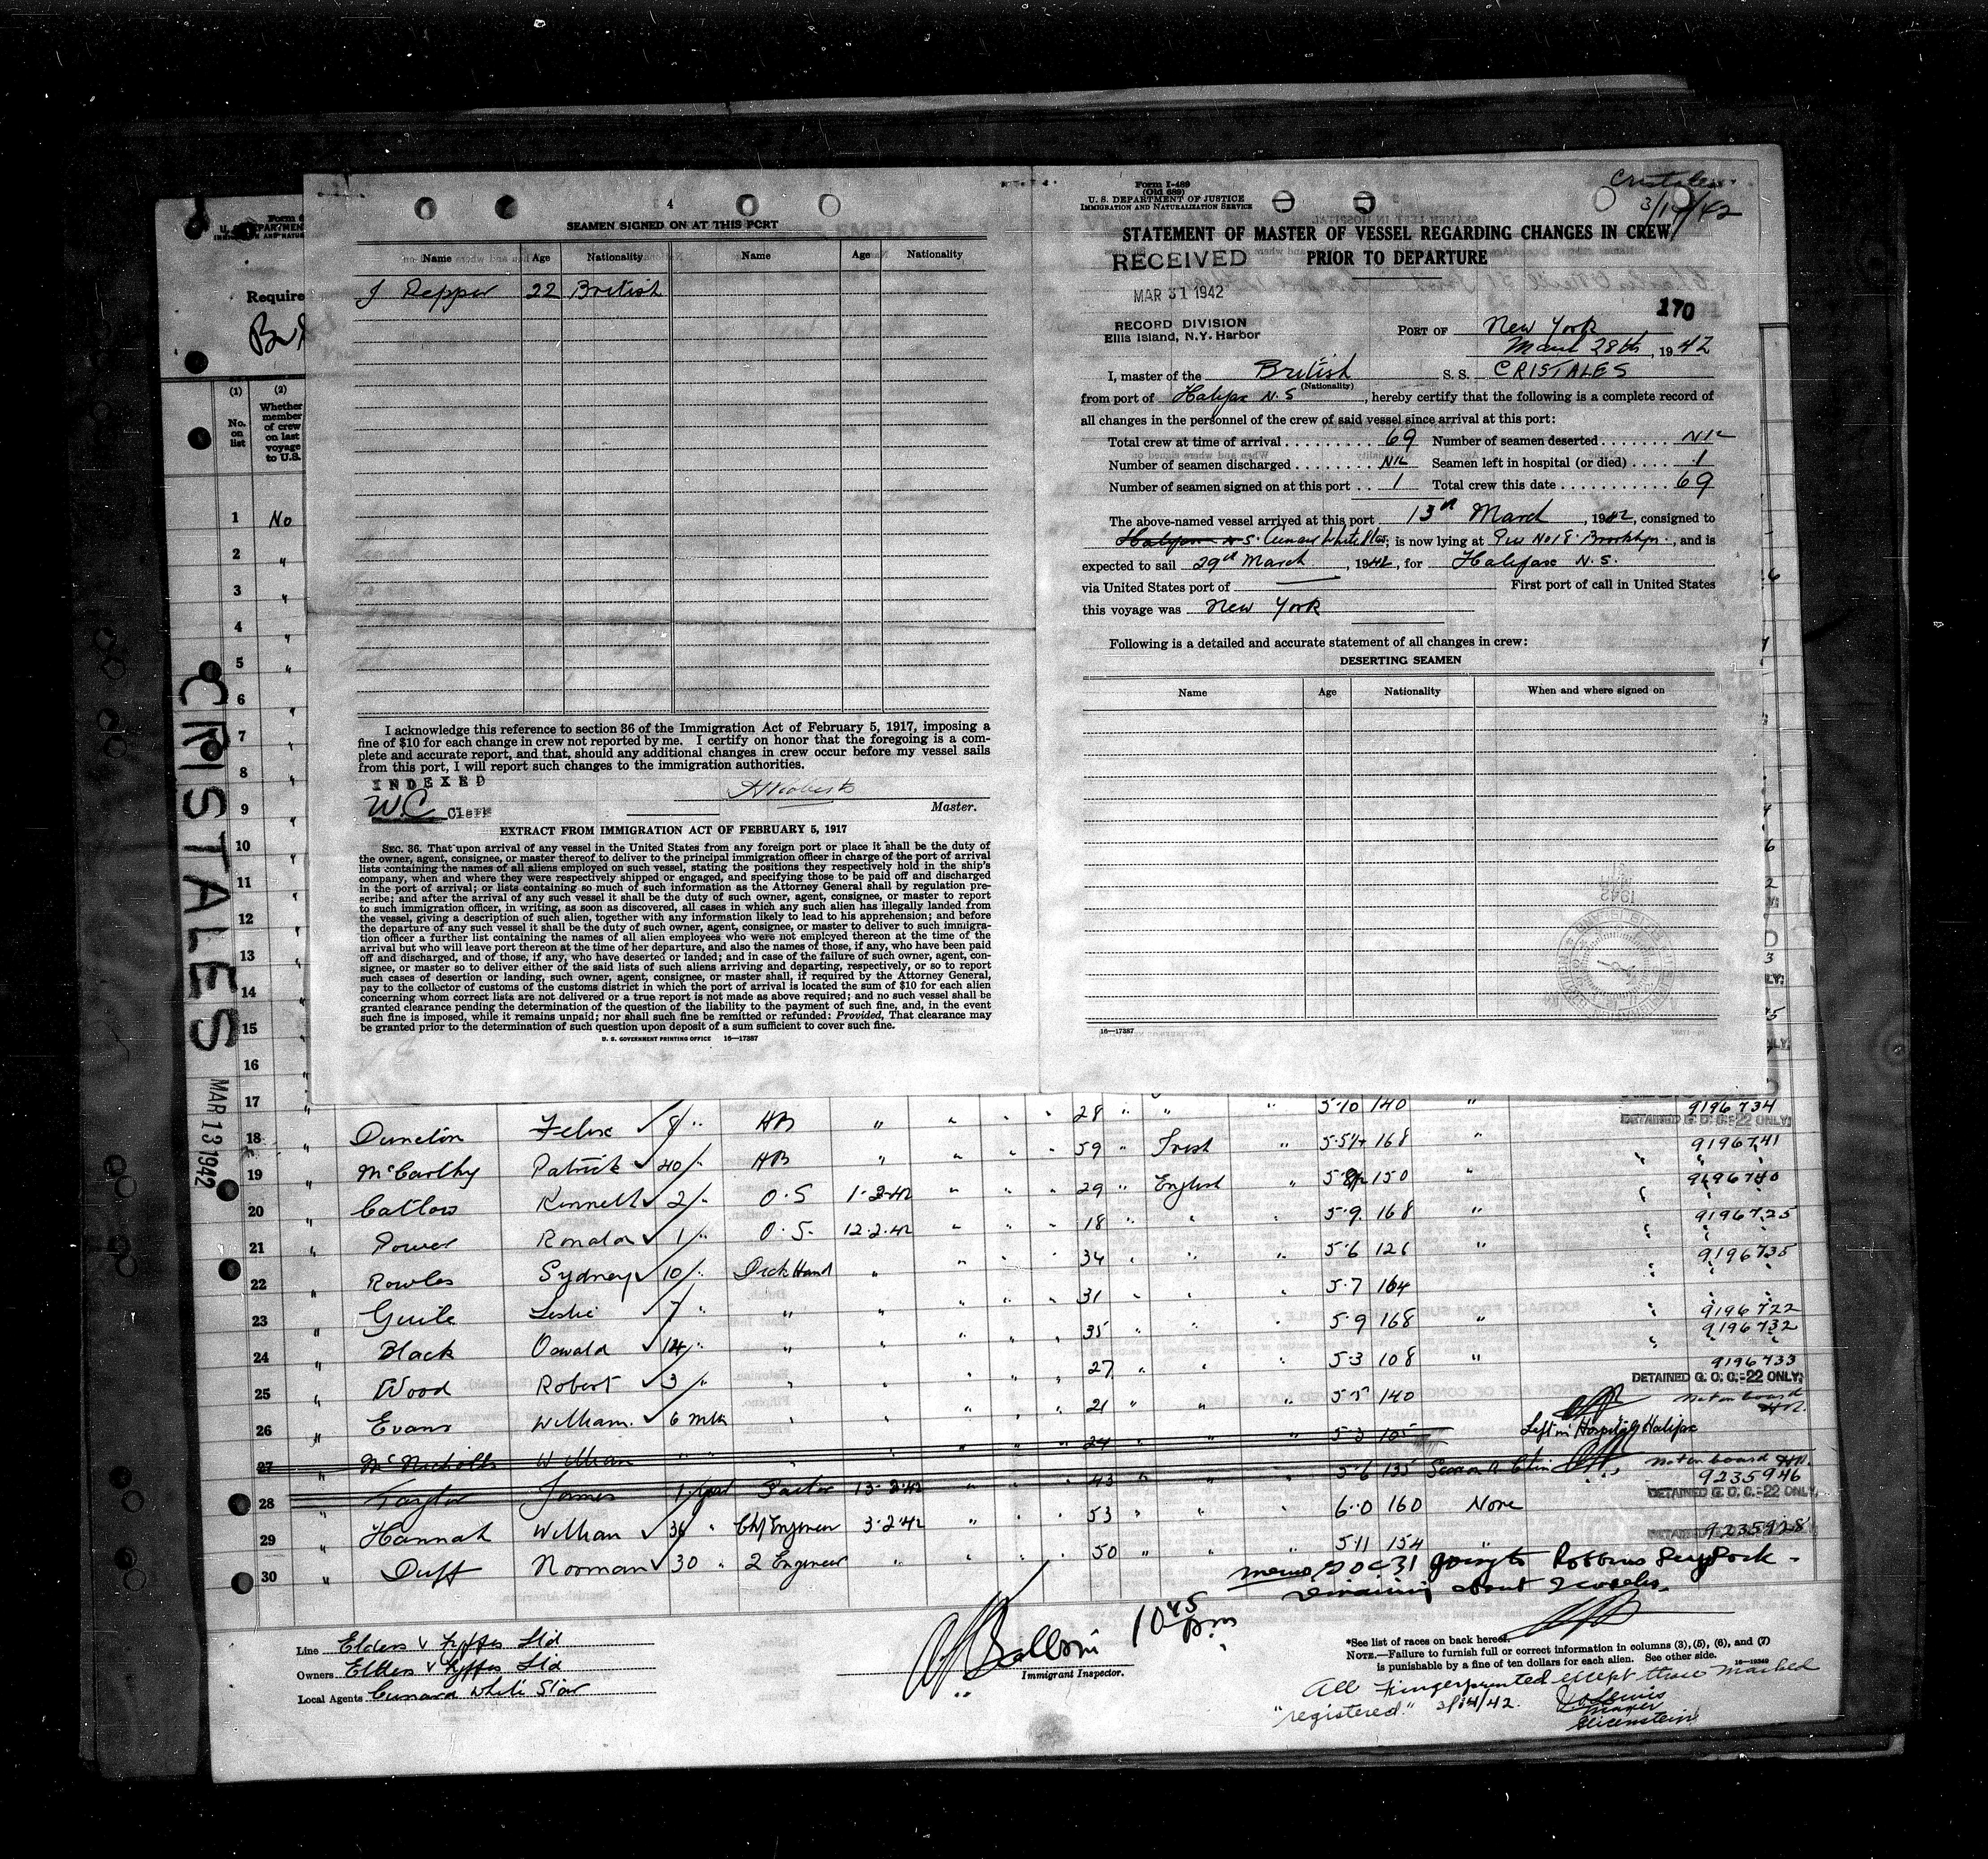 4
SEAMEN SIGNED ON AT THIS PORT
Name Age Nationality Name Age Nationality
J Pepper 22 British
I acknowledge this reference to section 36 of the Immigration Act of February 5, 1917, imposing a
fine of $10 for each change in crew not reported by me. I certify on honor that the foregoing is a com-
plete and accurate report, and that, should any additional changes in crew occur before my vessel sails
from this port, I will report such changes to the immigration authorities.
INDEXED
WC Clerk
Master.
EXTRACT FROM IMMIGRATION ACT OF FEBRUARY 5, 1917
SEC. 36. That upon arrival of any vessel in the United States from any foreign port or place it shall be the duty of
the owner, agent, consignee, or master thereof to deliver to the principal immigration officer in charge of the port of arrival
lists containing the names of all aliens employed on such vessel, stating the positions they respectively hold in the ship's
company, when and where they were respectively shipped or engaged, and specifying those to be paid off and discharged
in the port of arrival; or lists containing so much of such information as the Attorney General shall by regulation pre-
scribe; and after the arrival of any such vessel it shall be the duty of such owner, agent, consignee, or master to report
to such immigration officer, in writing, as soon as discovered, all cases in which any such alien has illegally landed from
the vessel, giving a description of such alien, together with any information likely to lead to his apprehension; and before
the departure of any such vessel it shall be the duty of such owner, agent, consignee, or master to deliver to such immigra-
tion officer a further list containing the names of all alien employees who were not employed thereon at the time of the
arrival but who will leave port thereon at the time of her departure, and also the names of those, if any, who have been paid
off and discharged, and of those, if any, who have deserted or landed; and in case of the failure of such owner, agent, con-
signee, or master so to deliver either of the said lists of such aliens arriving and departing, respectively, or so to report
such cases of desertion or landing, such owner, agent, consignee, or master shall, if required by the Attorney General,
pay to the collector of customs of the customs district in which the port of arrival is located the sum of $10 for each alien
concerning whom correct lists are not delivered or a true report is not made as above required; and no such vessel shall be
granted clearance pending the determination of the question of the liability to the payment of such fine, and, in the event
such fine is imposed, while it remains unpaid; nor shall such fine be remitted or refunded: Provided, That clearance may
be granted prior to the determination of such question upon deposit of a sum sufficient to cover such fine.
U. S. GOVERNMENT PRINTING OFFICE 16—17387
Form I-489
(Old 689)
U. S. DEPARTMENT OF JUSTICE
IMMIGRATION AND NATURALIZATION SERVICE
Cristales
3/14/42
STATEMENT OF MASTER OF VESSEL REGARDING CHANGES IN CREW
PRIOR TO DEPARTURE
RECEIVED
MAR 31 1942
RECORD DIVISION
Ellis Island, N.Y. Harbor
170
PORT OF New York
March 28th, 1942
I, master of the British S. S. CRISTALES
(Nationality)
from port of Halifax N.S, hereby certify that the following is a complete record of
all changes in the personnel of the crew of said vessel since arrival at this port:
Total crew at time of arrival 69 Number of seamen deserted NIL
Number of seamen discharged NIL Seamen left in hospital (or died) 1
Number of seamen signed on at this port 1 Total crew this date 69
The above-named vessel arrived at this port 13th March, 1942, consigned to
Halifax N.S. Cunard White Star; is now lying at Pier No 18 Brooklyn, and is
expected to sail 29th March, 1942, for Halifax N.S.
via United States port of First port of call in United States
this voyage was New York
Following is a detailed and accurate statement of all changes in crew:
DESERTING SEAMEN
Name Age Nationality When and where signed on
16—17387
Require
(1) (2)
No. on list
Whether member of crew on last voyage to U.S.
CRISTALES
MAR 13 1942
1 No
2 "
3 "
4 "
5 "
6 "
7 "
8 "
9 "
10 "
11 "
12 "
13 "
14 "
15 "
16 "
17 "
28 " " " 5-10 140 " 9196734
DETAINED G. O. C.-22 ONLY;
18 " Felix 8 " AB " " 59 " Irish " 5-5½ 168 " 9196741
19 " McCarthy Patrick 40 " AB " " 29 " English " 150 " 9196740
20 " Catlow Kenneth 2 " O.S 1-2-42 " 18 " " 5-9 168 " 9196725
21 " Power Ronald 1 " O.S. 12-2-42 " 34 " " 5-6 126 " 9196735
22 " Rowles Sydney 10 " Deck Hand " " 31 " " 5-7 164
23 " Guile Leslie 7 " " " 35 " " 5-9 168 " 9196722
24 " Black Oswald 14 " " " 27 " " 5-3 108 " 9196732
25 " Wood Robert 3 " " " 21 " " 5-5 140 9196733
DETAINED G. O. C.-22 ONLY;
26 " Evans William 6 mth " " 24 " " 5-3 105 Left in Hospital Halifax Not on board
27 " McNicholls William " " 43 " " 5-6 135 Not on board
28 " Taylor James 13-2-42 " 53 " " 6-0 160 None 9235946
DETAINED G. O. C.-22 ONLY,
29 " Hannah William 36 " Chf Engineer 3-2-42 " 50 " " 5-11 154 " 9235928
30 " Duff Norman 30 " 2 Engineer "
going to Robbins Dry Dock -
remaining about 2 weeks.
Line Elders & Fyffes Ltd
Owners Elders & Fyffes Ltd
Local Agents Cunard White Star
10 45 pm
Immigrant Inspector.
*See list of races on back hereof.
NOTE.—Failure to furnish full or correct information in columns (3), (5), (6), and (7)
is punishable by a fine of ten dollars for each alien. See other side.
16—19349
All Fingerprinted except those marked
"registered" 3/14/42. Lewis
Glicenstein